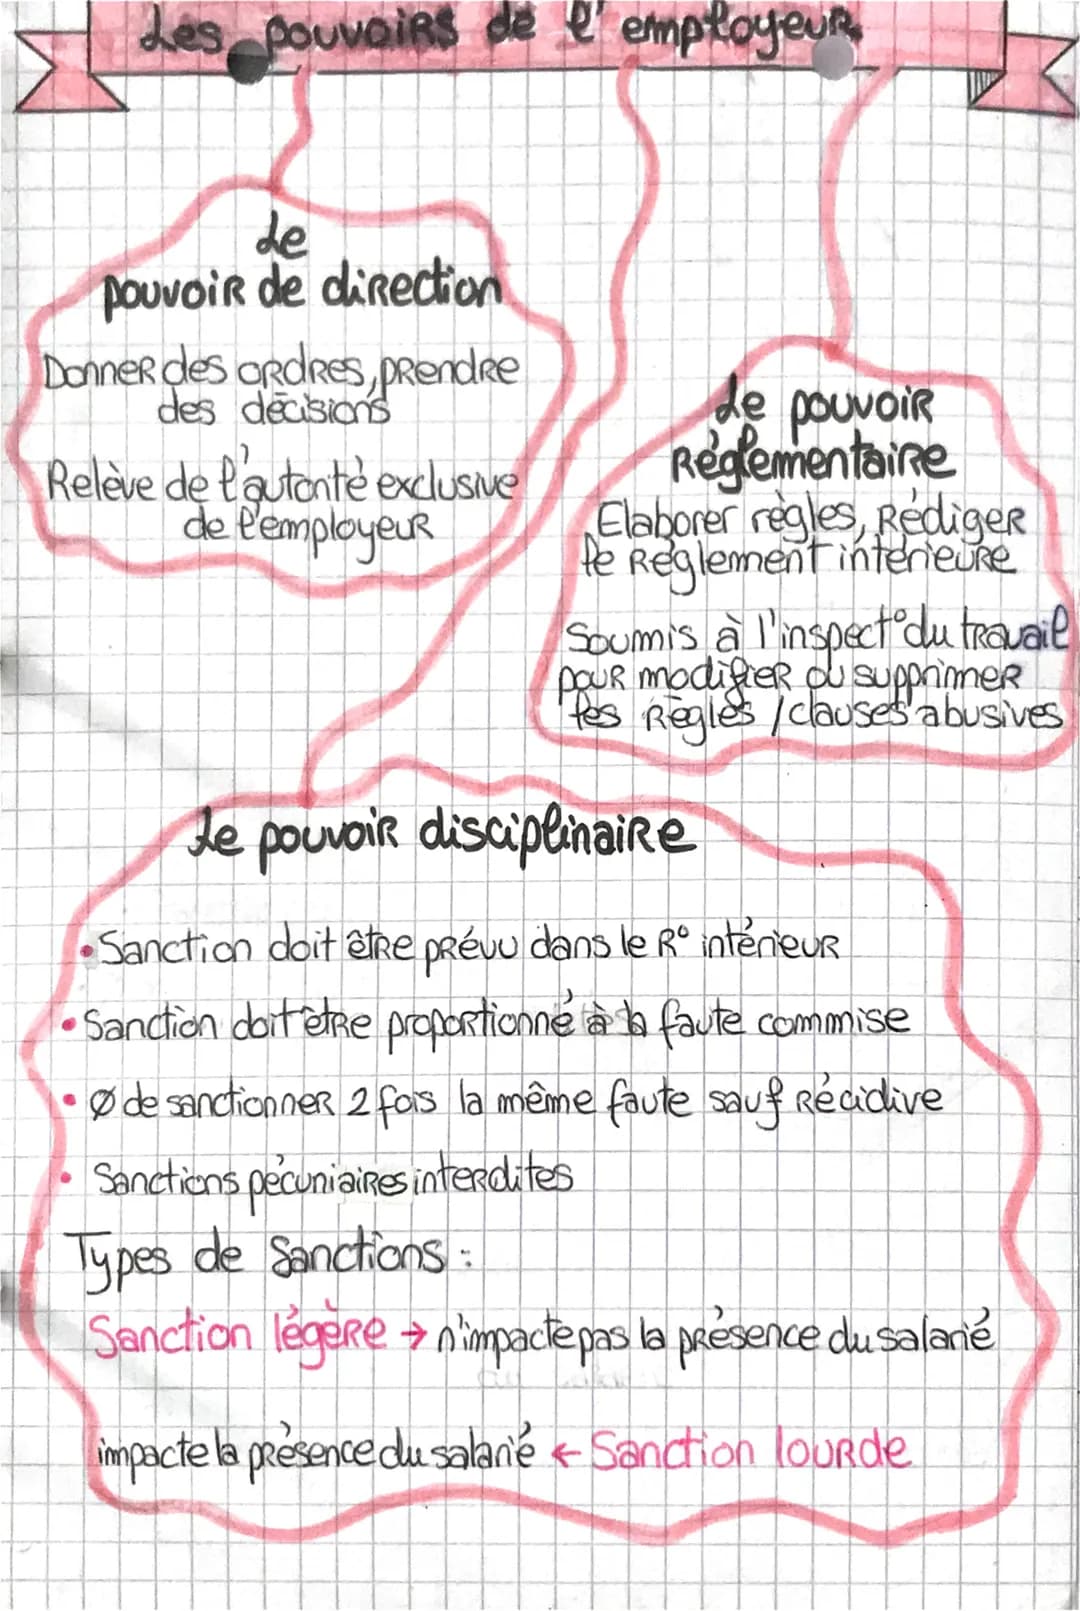 Les pouvoirs de l'employeur
Le
pouvoir de direction
Donner des ordres, prendre
des décisions
Relève de l'autorité exclusive
de l'employeur
Le pouvoir
Réglementaire
Elaborer règles, Rédiger
le Réglement intérieure
Soumis à l'inspect° du travail
pour modifier ou supprimer
les Règles / clauses abusives
Le pouvoir disciplinaire
• Sanction doit être prévu dans le R° intérieur
• Sanction doit être proportionné à la faute commise
• Ø de sanctionner 2 fois la même faute sauf Récidive
• Sanctions pécuniaires interdites
Types de Sanctions :
Sanction légère → n'impacte pas la présence du salarié
impacte la présence du salarié ← Sanction lourde